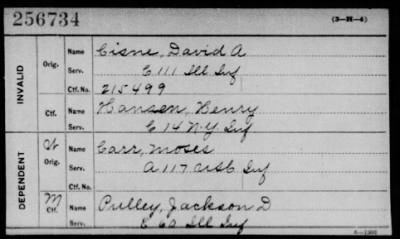 256734
(3-H-4)
INVALID
Orig.
Name Cisne, David A
Serv. E 111 Ill Inf
Ctf. No. 215499
Ctf.
Name Hansen, Henry
Serv. E 14 N.Y. Inf
DEPENDENT
W
Orig.
Name Carr, Moses
Serv. A 117 USC Inf
Ctf. No.
M
Ctf.
Name Pulley, Jackson D
Serv. E 60 Ill Inf